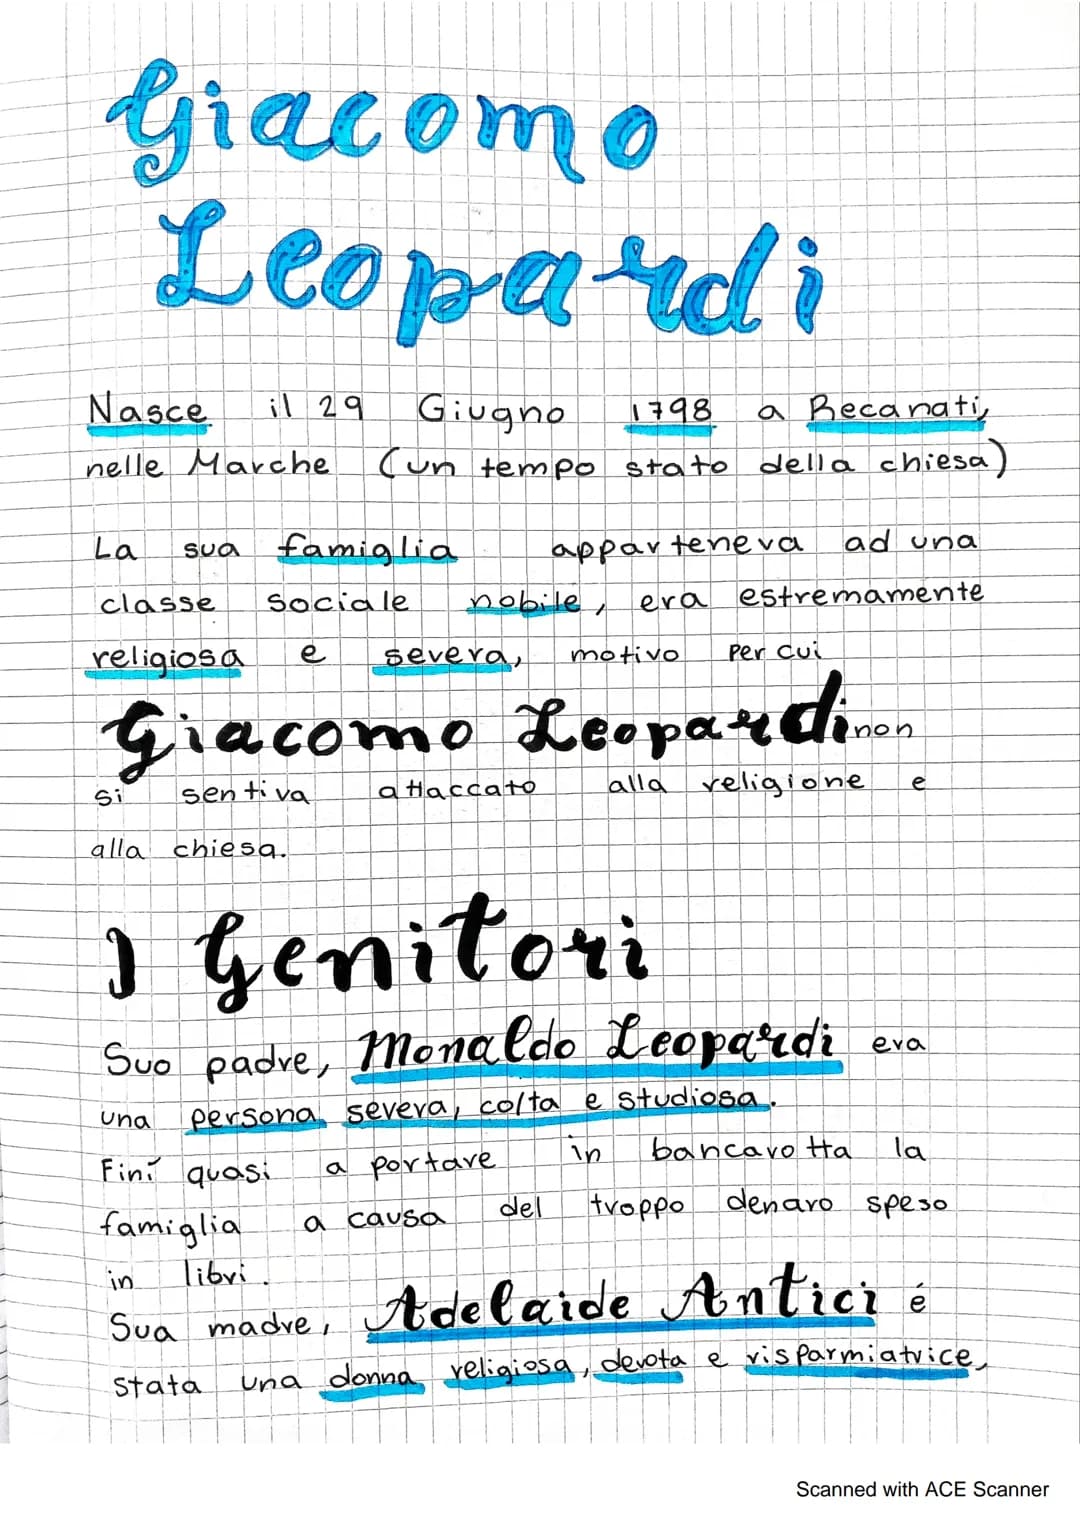 Giacomo
Leopardi
Nasce il 29 Giugno 1798 a Recanati,
nelle Marche (un tempo stato della chiesa)
La sua famiglia apparteneva ad una
classe sociale nobile, era estremamente
religiosa e severa, motivo per cui
Giacomo Leopardi non
si sentiva attaccato alla religione e
alla chiesa.
I Genitori
Suo padre, Monaldo Leopardi era
una persona severa, colta e studiosa.
Finì quasi a portare in bancarotta la
famiglia a causa del troppo denaro speso
in libri.
Sua madre, Adelaide Antici é
stata una donna religiosa, devota e risparmiatrice,
Scanned with ACE Scanner